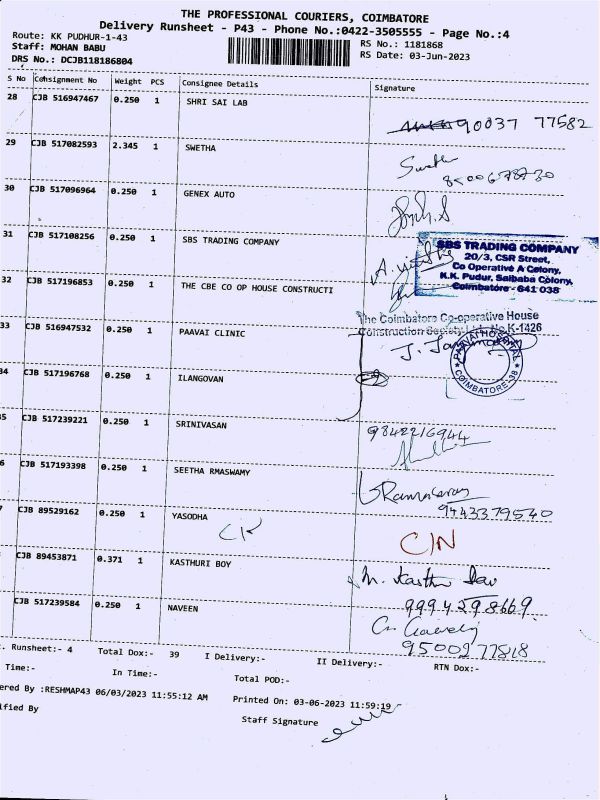 THE PROFESSIONAL COURIERS, COIMBATORE
Delivery Runsheet - P43 - Phone No.:0422-3505555 - Page No.:4
Route: KK PUDHUR-1-43
RS No.: 1181868
Staff: MOHAN BABU
RS Date: 03-Jun-2023
DRS No.: DCJB118186804
S No Consignment No Weight PCS Consignee Details Signature
28 CJB 516947467 0.250 1 SHRI SAI LAB
90037 77582
29 CJB 517082593 2.345 1 SWETHA
Swetha
30 CJB 517096964 0.250 1 GENEX AUTO
31 CJB 517108256 0.250 1 SBS TRADING COMPANY
SBS TRADING COMPANY
20/3, CSR Street,
Co Operative A Colony,
K.K. Pudur, Saibaba Colony,
Coimbatore - 641 038
32 CJB 517196853 0.250 1 THE CBE CO OP HOUSE CONSTRUCTI
The Coimbatore Co-operative House
Construction Society Ltd. No.K-1426
33 CJB 516947532 0.250 1 PAAVAI CLINIC
PAAVAI HOSPITAL
COIMBATORE-38
34 CJB 517196768 0.250 1 ILANGOVAN
35 CJB 517239221 0.250 1 SRINIVASAN
9842216944
6 CJB 517193398 0.250 1 SEETHA RMASWAMY
9443379540
7 CJB 89529162 0.250 1 YASODHA
CK
C/N
CJB 89453871 0.371 1 KASTHURI BOY
9994598669
CJB 517239584 0.250 1 NAVEEN
9500277818
. Runsheet:- 4 Total Dox:- 39 I Delivery:- II Delivery:- RTN Dox:-
Time:- In Time:- Total POD:-
ered By :RESHMAP43 06/03/2023 11:55:12 AM Printed On: 03-06-2023 11:59:19
ified By Staff Signature